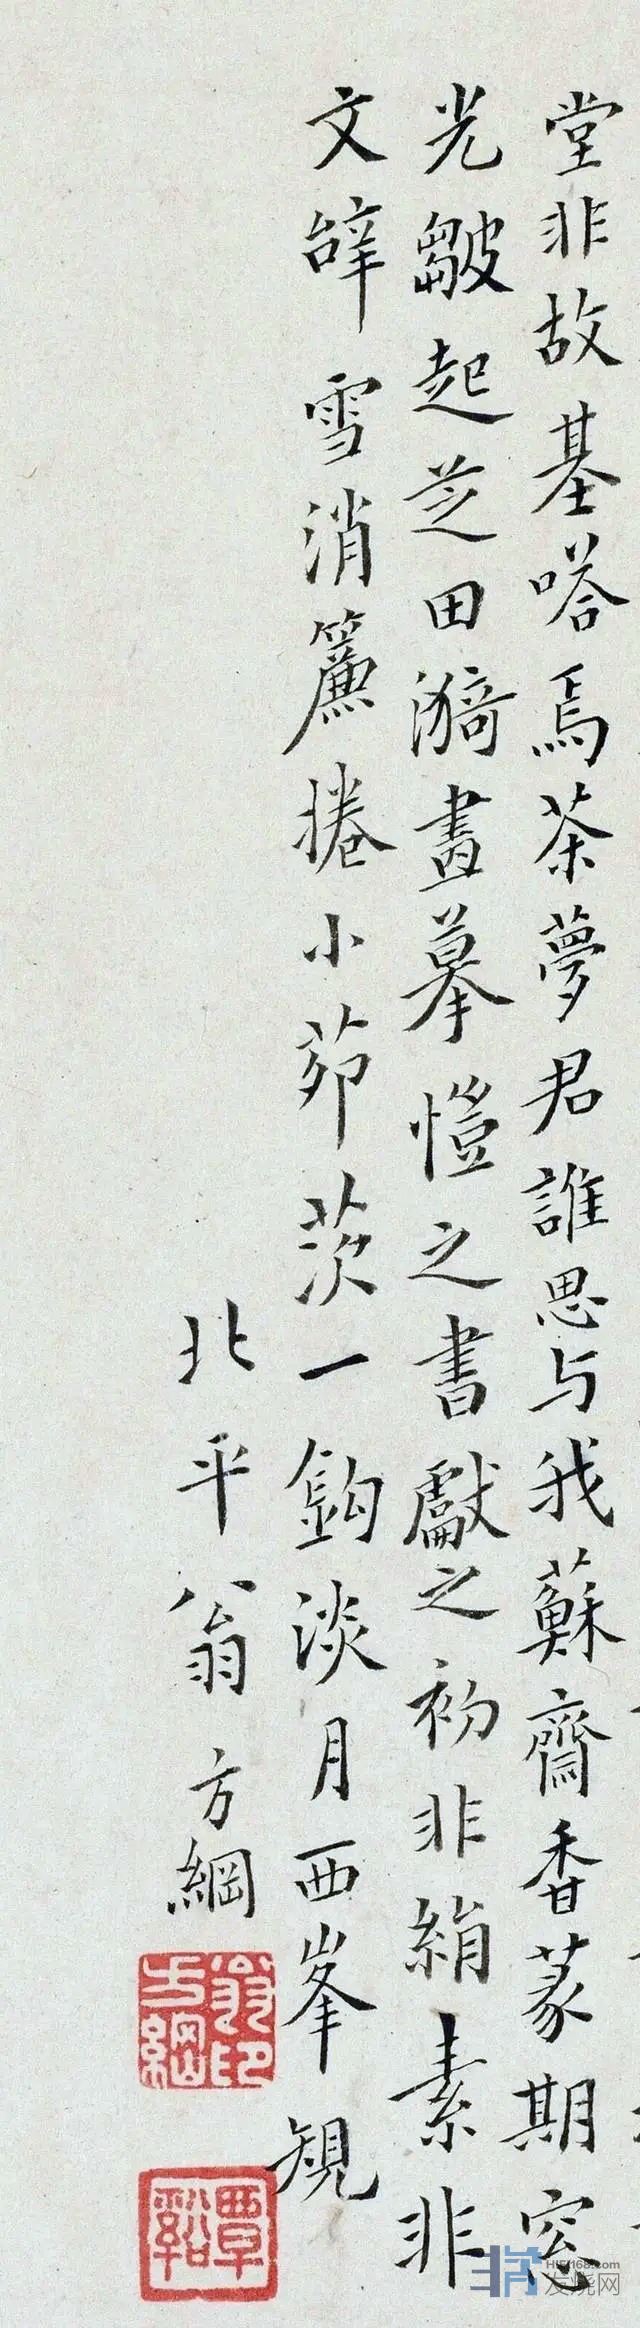 堂非故基嗒焉茶夢君誰思与我蘇齋香篆期窓
光皺起芝田漪畫摹愷之書獻之初非絹素非
文辞雪消簾捲小茆茨一鉤淡月西峯規
北平翁方綱
翁方綱印
覃谿
HIFI168.com
发烧网